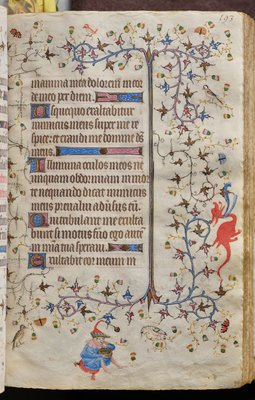 193
in anima mea dolorem in cor
de meo per diem.
Usquequo exaltabitur
inimicus meus super me re
spice et exaudi me domine ds
meus.
Illumina oculos meos ne
unquam obdormiam in mor
te nequando dicat inimicus
meus prevalui adversus eum
Qui tribulant me exulta
bunt si motus fuero ego autem
in misericordia tua speravi.
Exultabit cor meum in